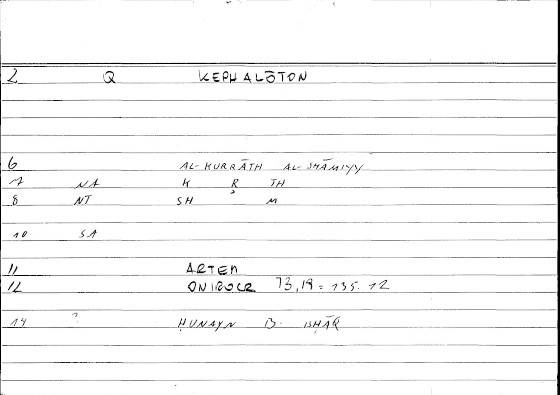 2 Q KEPHALŌTON
6 AL-KURRĀTH AL-SHĀMIYY
7 NA K Ṛ TH
8 NT SH M
10 SA
11 ARTEM
12 ONIROCR 73,19 = 135.12
14 ? ḤUNAYN B. ISḤĀQ